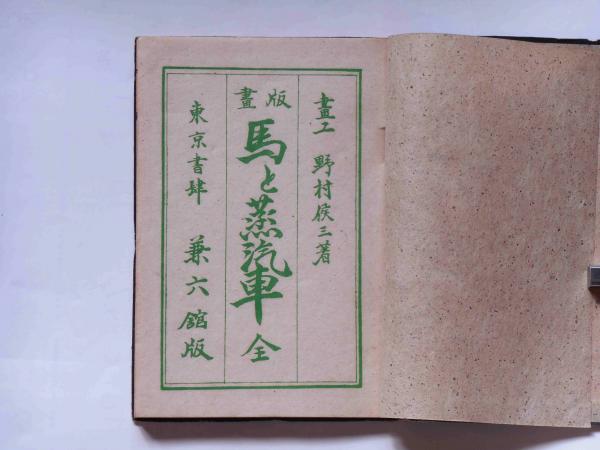 畫工 野村俟三著
版畫
馬と蒸汽車 全
東京書肆 兼六館版